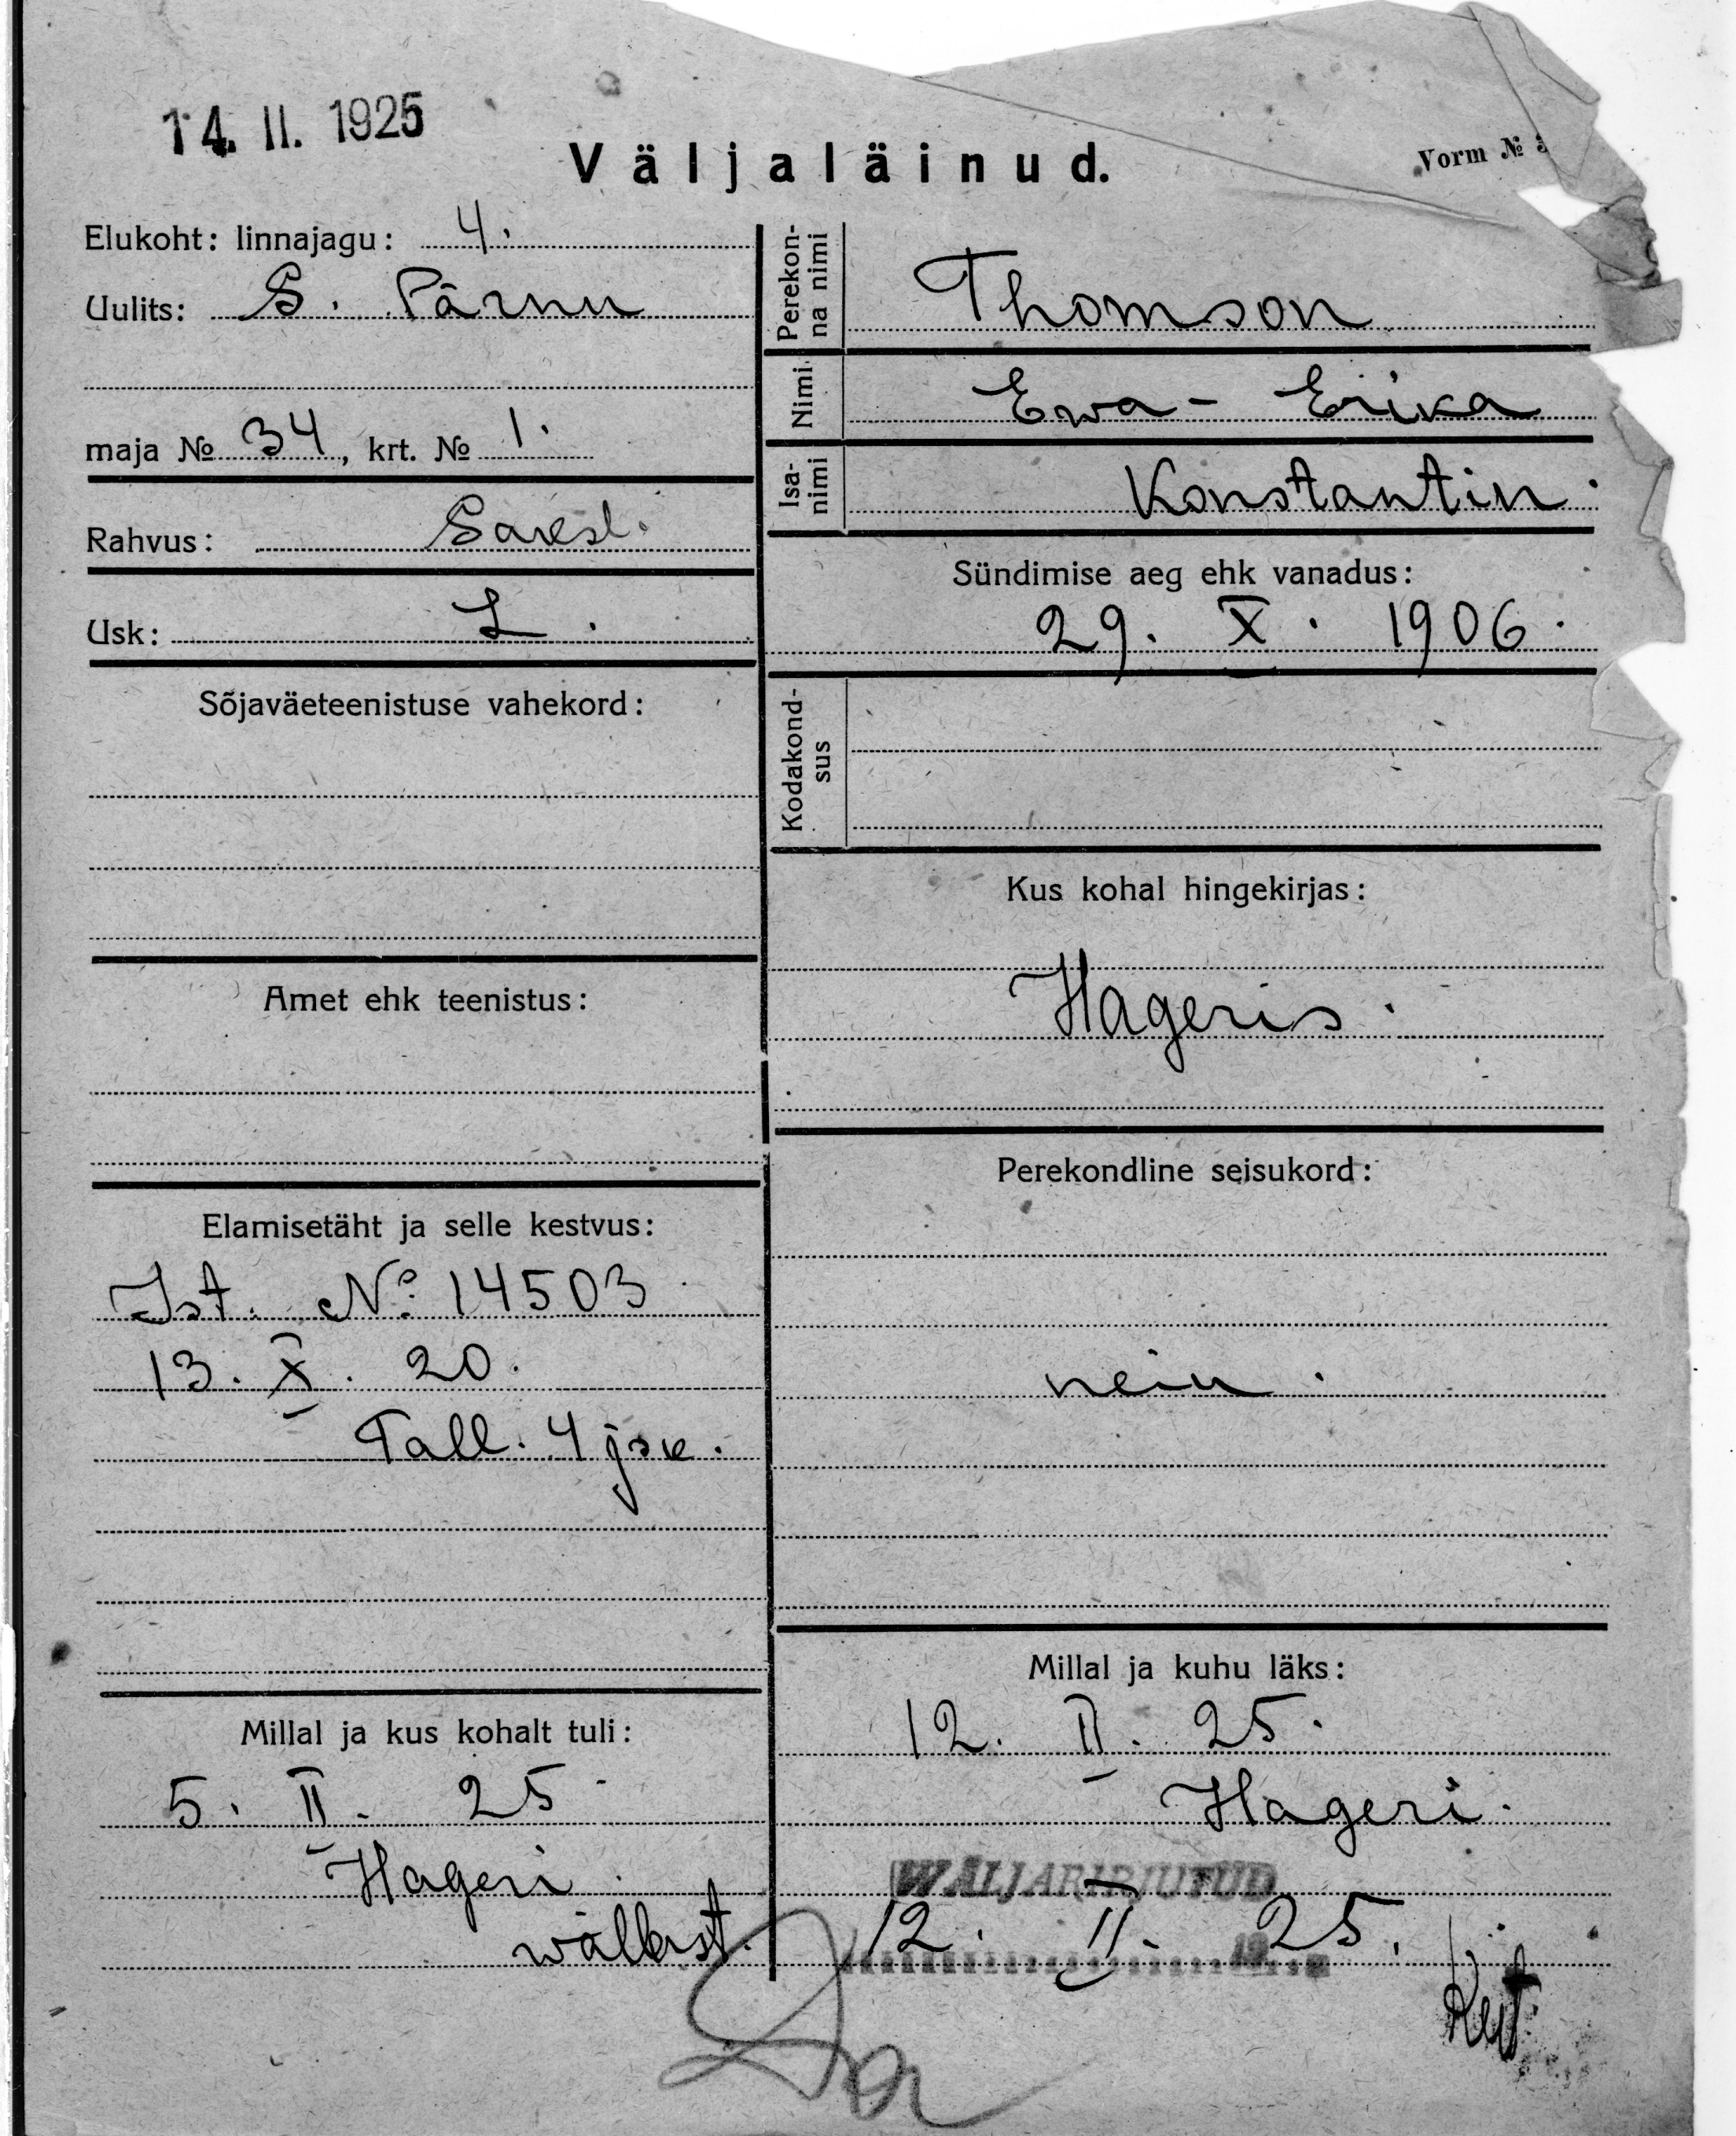 14. II. 1925
Väljaläinud.
Vorm №
Elukoht: linnajagu: 4.
Uulits: S. Pärnu
maja № 34, krt. № 1.
Rahvus: Saksl.
Usk: L.
Sõjaväeteenistuse vahekord:
Amet ehk teenistus:
Elamisetäht ja selle kestvus:
Ist. № 14503
13. X. 20.
Tall. 4 jsk.
Millal ja kus kohalt tuli:
5. II. 25
Hageri
wallast.
Perekon-
na nimi
Thomson
Nimi
Ewa - Erika
Isa-
nimi
Konstantin
Sündimise aeg ehk vanadus:
29. X. 1906.
Kodakond-
sus
Kus kohal hingekirjas:
Hageris.
Perekondline seisukord:
nein.
Millal ja kuhu läks:
12. II. 25.
Hageri.
WÄLJAKIRJUTUD
12. II. 25.